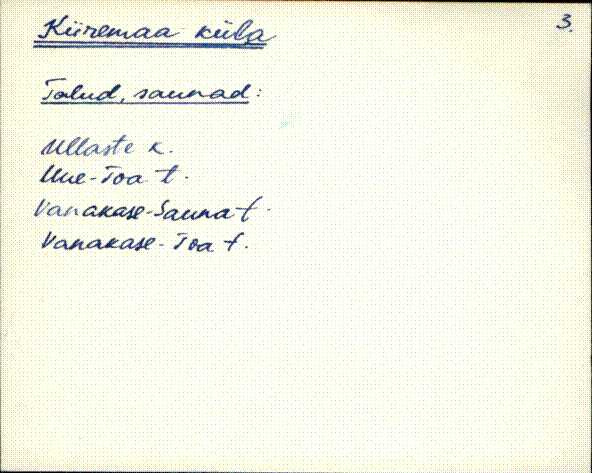 Kiiremaa küla
3.
Talud, saunad:
Ullaste k.
Uue-Toa t.
Vanakase-Sauna t.
Vanakase-Toa t.